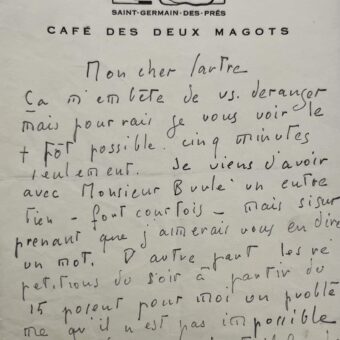 SAINT-GERMAIN-DES-PRÉS
CAFÉ DES DEUX MAGOTS
Mon cher Sartre
Ça m'embête de vs. deranger
mais pourrais je vous voir le
+ tôt possible. cinq minutes
seulement. Je viens d'avoir
avec Monsieur un entre
tien - fort courtois - mais si sur
prenant que j'aimerais vous en dire
un mot. D'autre part les ré
petitions du soir à partir du
15 posent pour moi un problè
me qu'il n'est pas impossible